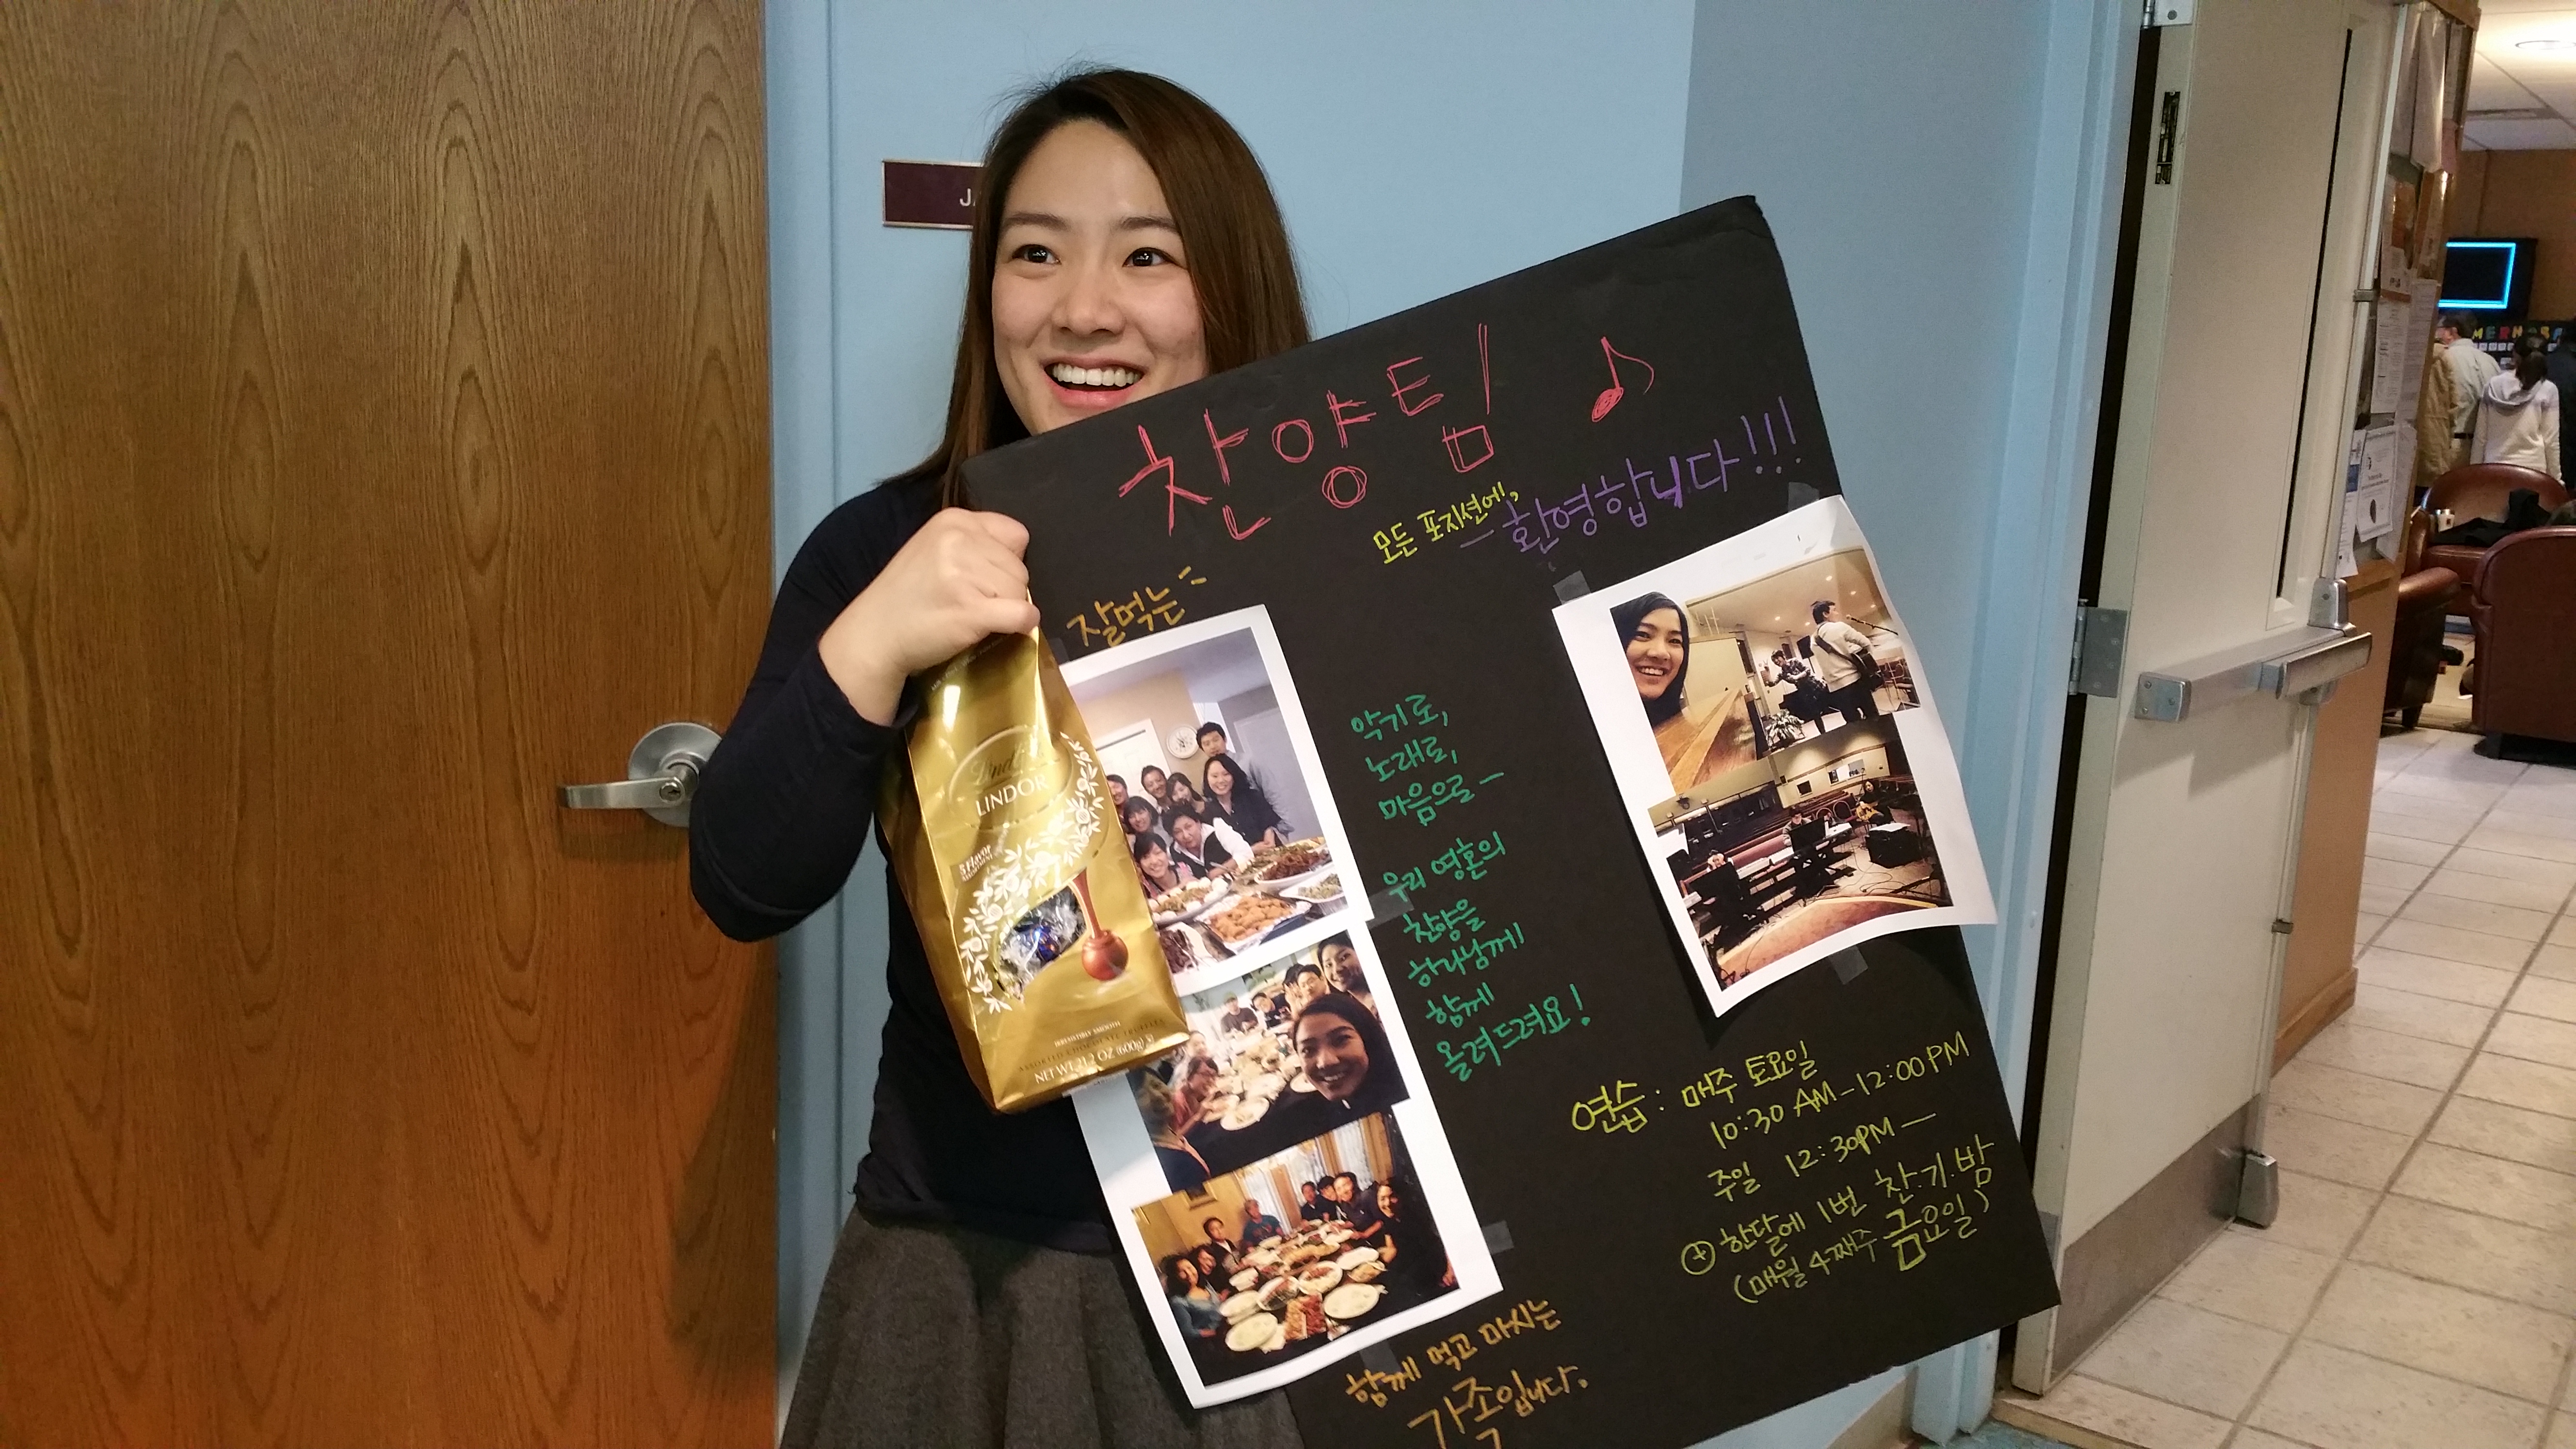 찬양팀
모든 포지션에,
환영합니다!!!
잘먹는
악기로,
노래로,
마음으로 -
우리 영혼의
찬양을
하나님께
함께
올려드려요!
연습: 매주 토요일
10:30 AM - 12:00 PM
주일 12:30PM -
+ 한달에 1번 찬.기.밤
(매월 4째주 금요일)
함께 먹고 마시는
가족입니다.
Lindt
LINDOR
5 Flavor
IRRESISTIBLY SMOOTH
ASSORTED CHOCOLATE TRUFFLES
NET WT 21.2 OZ (600g)
JA